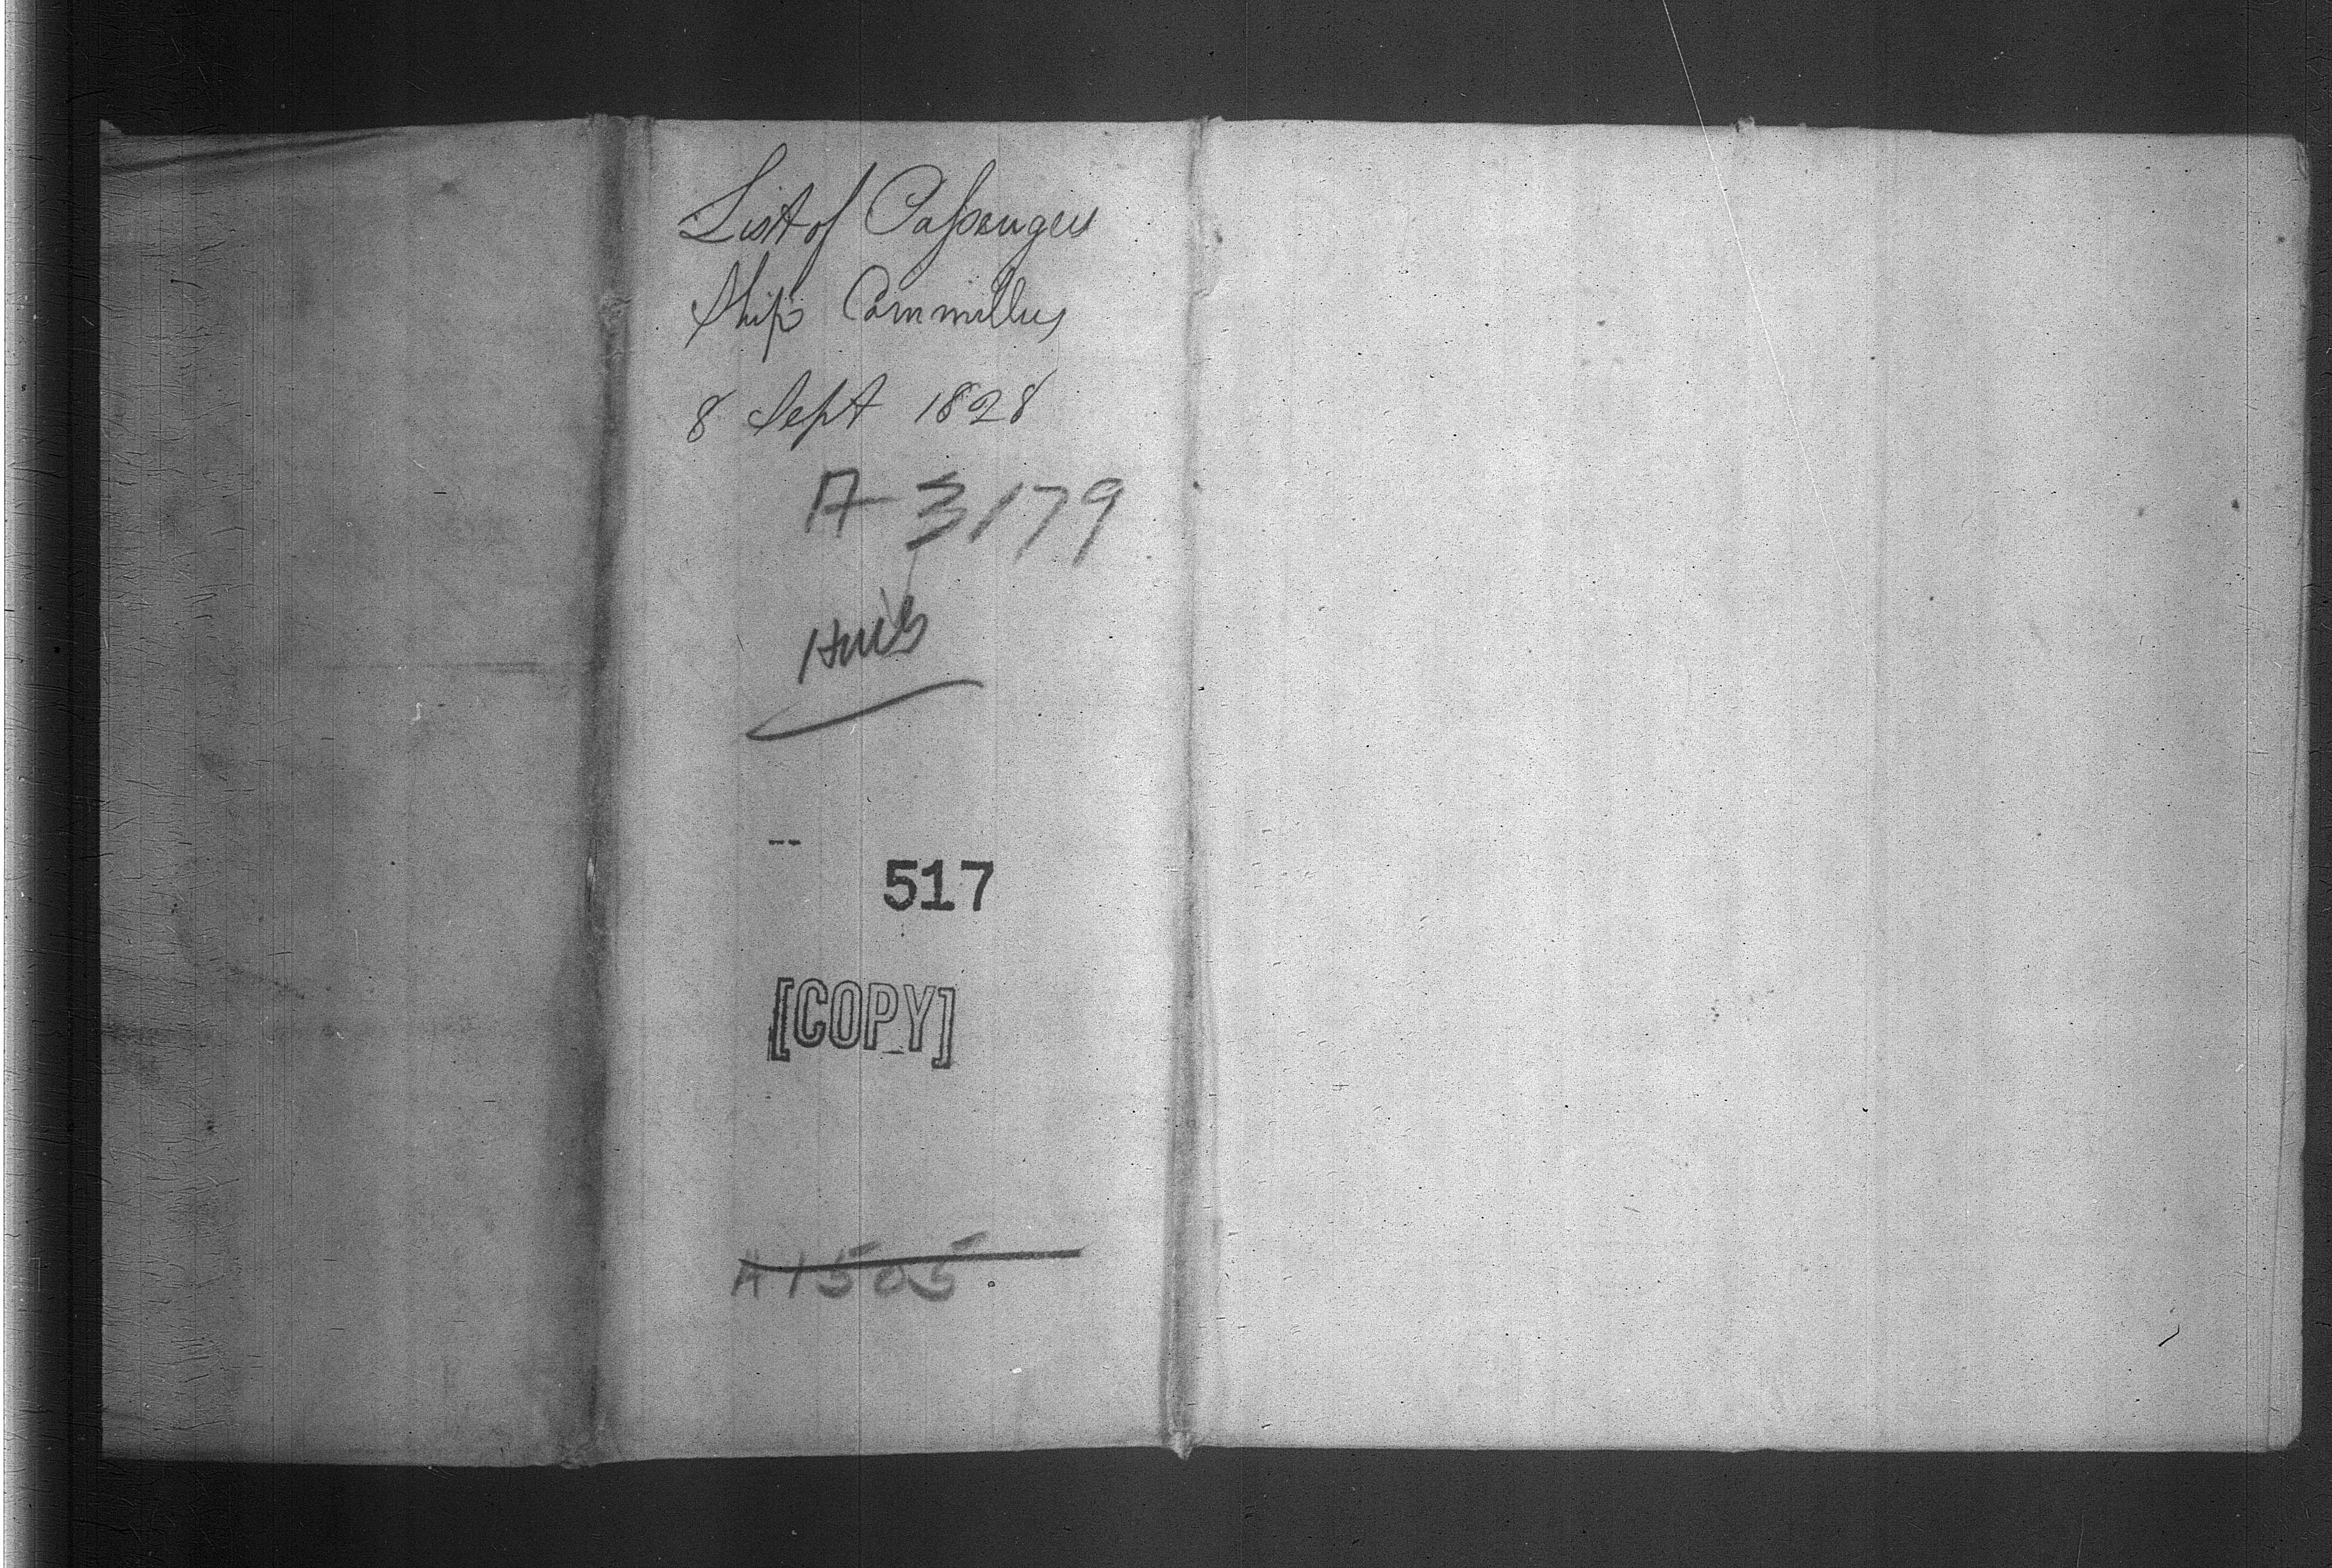 List of Passengers
Ship Cammillus
8 Sept 1828
A 3179
517
[COPY]
A 1505